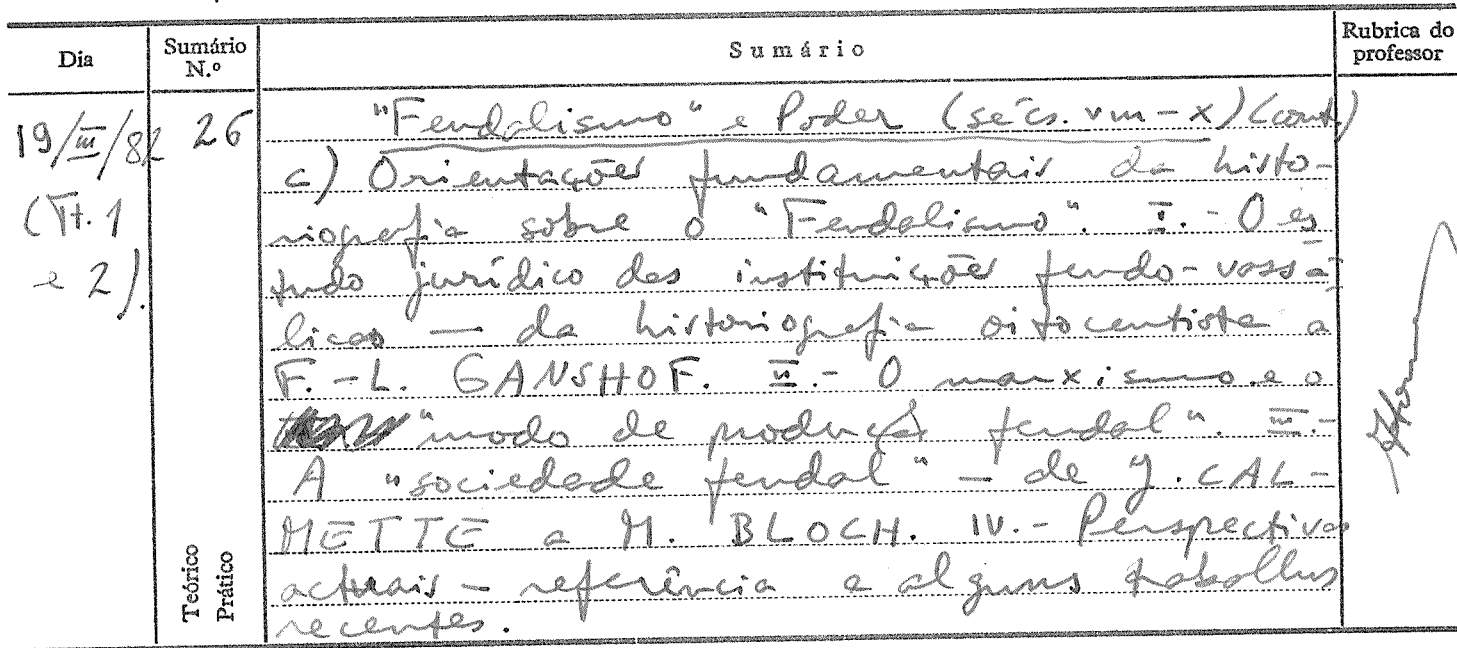 Dia Sumário N.º Sumário Rubrica do professor
19/III/82 26 "Feudalismo" e Poder (sécs. VIII-X) (cont.)
c) Orientações fundamentais da histo-
(Tt. 1 riografia sobre o "Feudalismo". I. - O es
e 2). tudo jurídico das instituições feudo-vassá
licas — da historiografia oitocentista a
F.-L. GANSHOF. II. - O marxismo e o
"modo de produção feudal". III. -
A "sociedade feudal" - de J. CAL-
METTE a M. BLOCH. IV. - Perspectivas
actuais - referência a alguns trabalhos
recentes.
Teórico
Prático